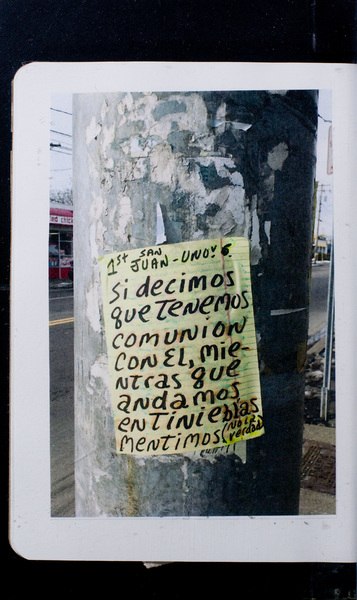 1st SAN JUAN - UNO y 6.
Si decimos
que tenemos
comunion
con El, mie-
ntras que
andamos
en tinieblas
mentimos (no la verdad)